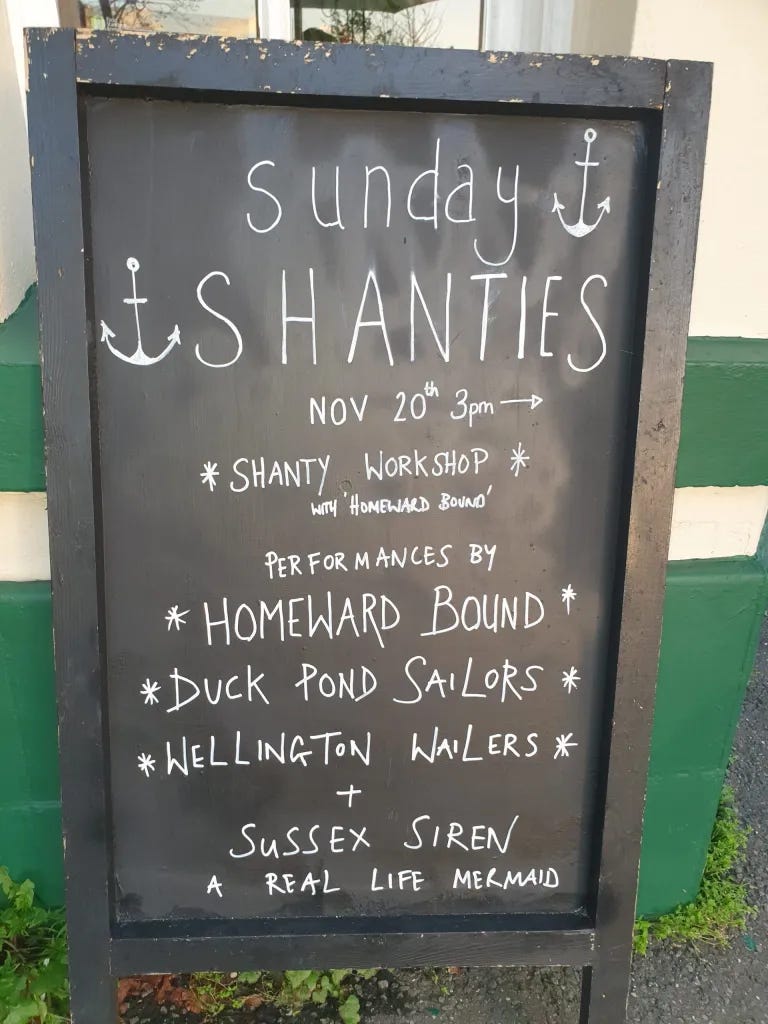 Sunday
SHANTIES
NOV 20th 3pm →
* SHANTY WORKSHOP *
WITH 'HOMEWARD BOUND'
PERFORMANCES BY
* HOMEWARD BOUND *
* DUCK POND SAILORS *
* WELLINGTON WAILERS *
+
SUSSEX SIREN
A REAL LIFE MERMAID